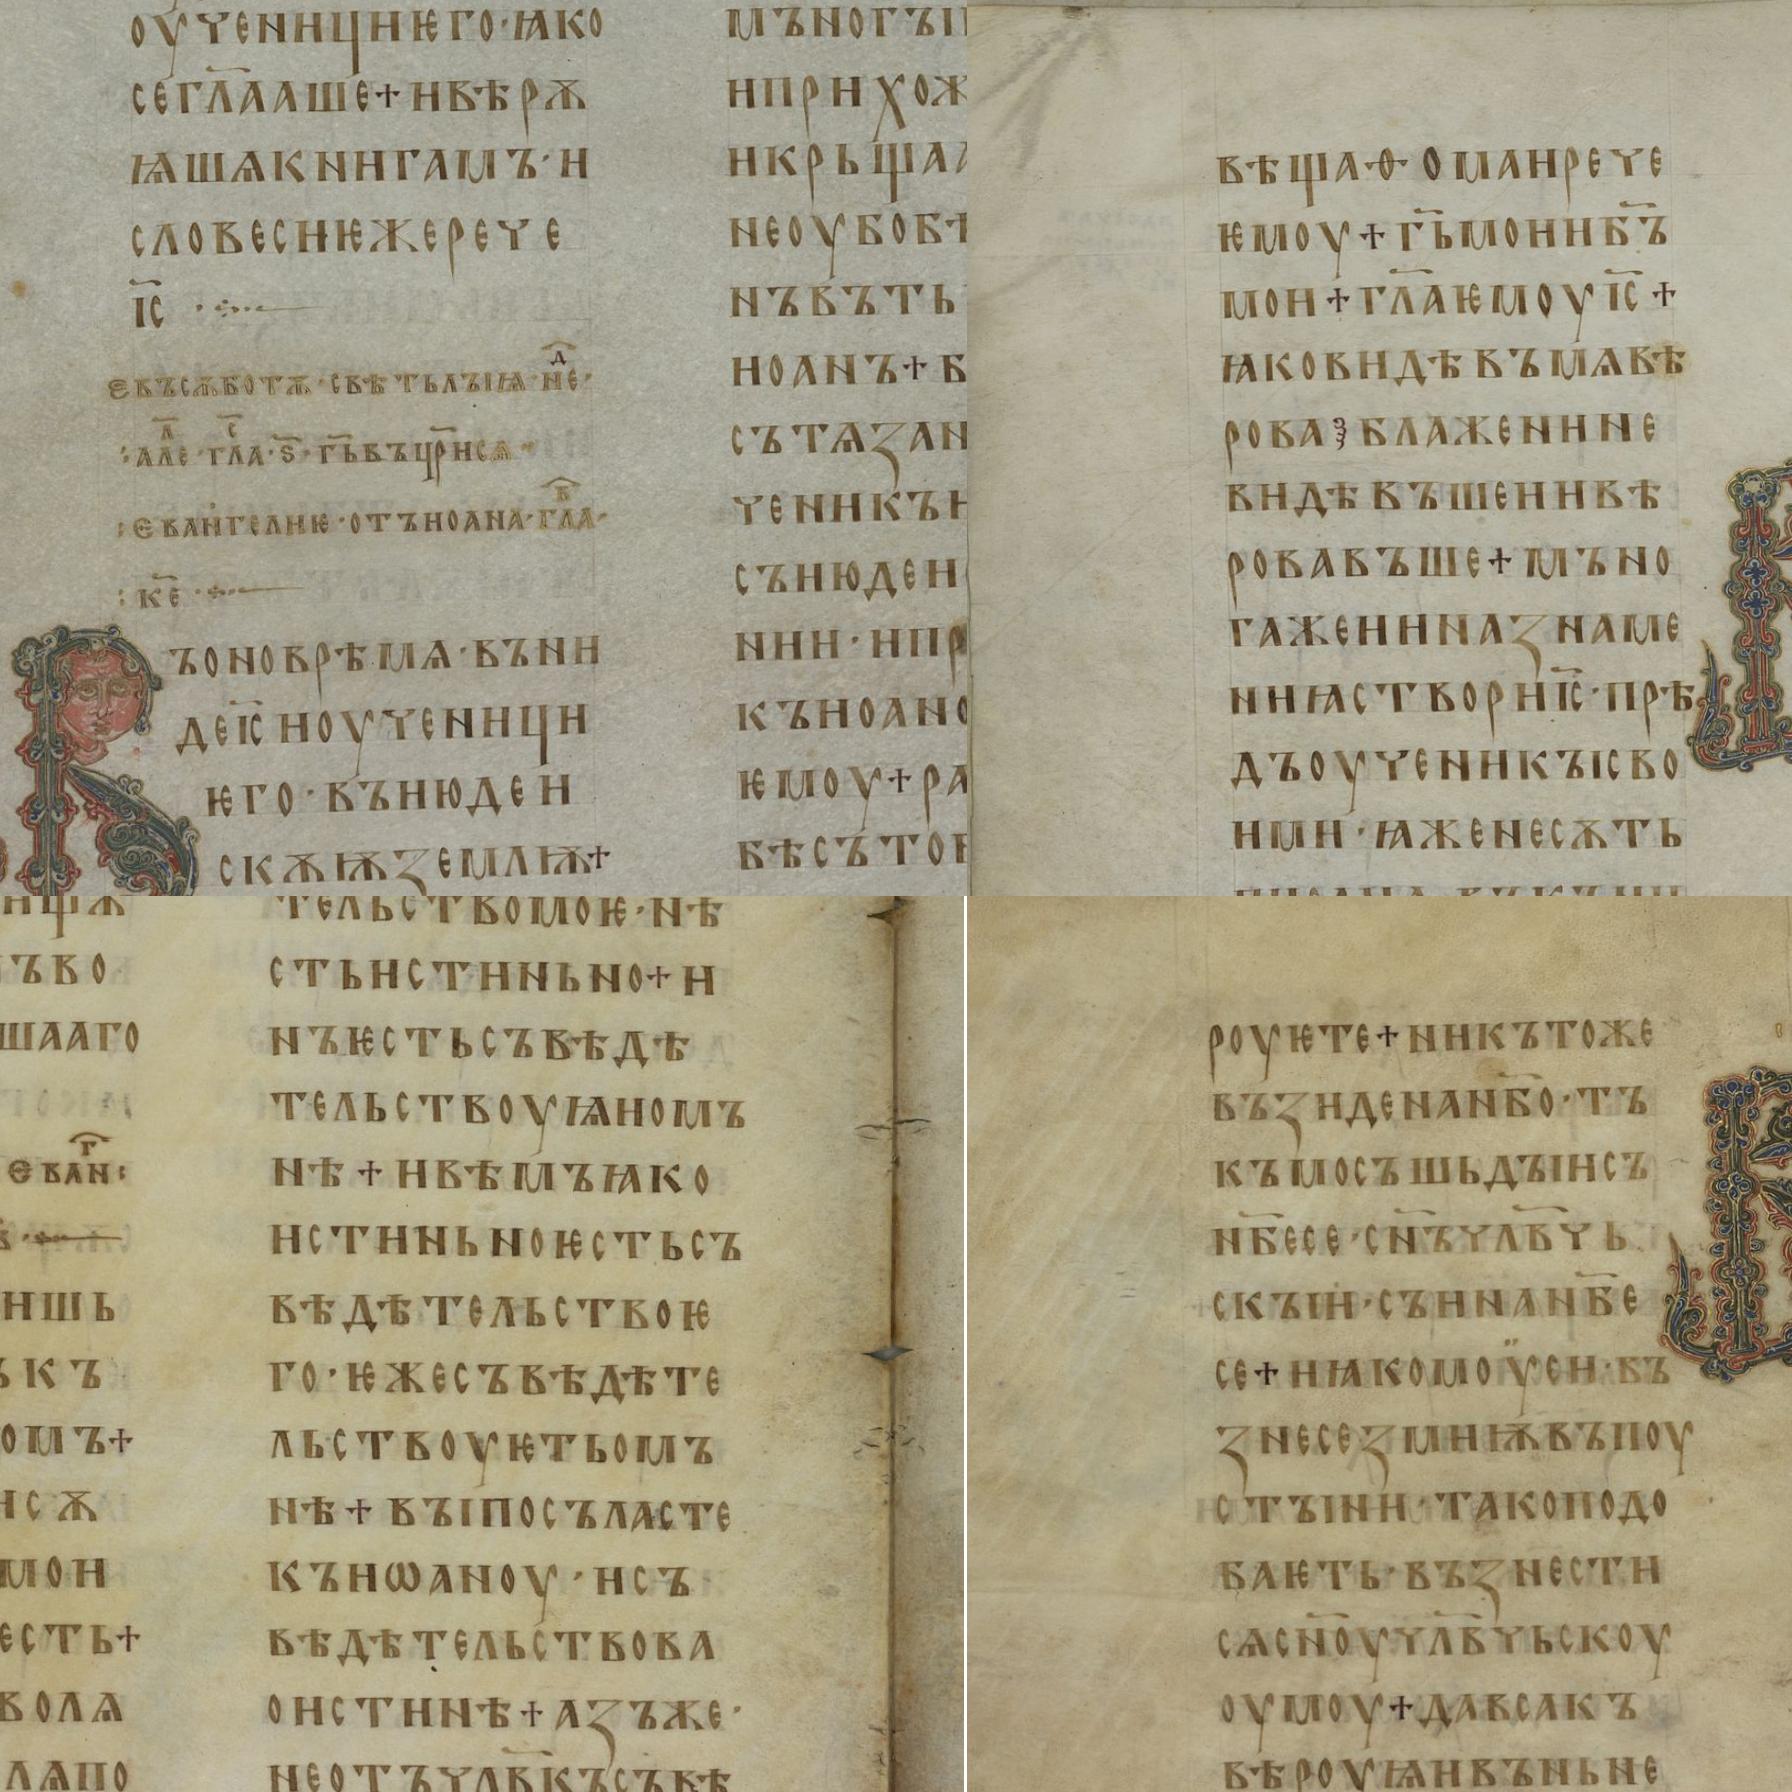 оууєници ѥго · ꙗко
сегл҃ааше + и вѣрѫ
ѩшѧ книгамъ · и
словеси ѥже рече
і҃с
є въ сѫботѫ · свѣтълыѩ · не · д
але · гл҃а · ѕ҃ · г҃ь въцр҃исѧ
єванг̇елиѥ · отъ иоана · гла · в
к҃е
ъ оно врѣмѧ · въни
де і҃с и оученици
ѥго · въ июдеи
скѫѭ землѭ +
мъногы
и прихож
и крьщаа
не оу бо бѣ
нъ въ ть
иоанъ + б
сътѧзан
ченикъ и
съ июдеи
нии · и пр
къ иоано
ѥмоу + ра
бѣ съ тоб
вѣща ѳома и рече
ѥмоу + г҃ь мои и б҃ъ
мои + гл҃а ѥмоу і҃с +
ꙗко видѣвъ мѧ вѣ
рова блажении не
видѣвъшеи и вѣ
ровавъше + мъно
га же и ина знаме
ниꙗ створи і҃с · прѣ
дъ оученикы сво
ими · ꙗже не сѫть
ъво
шааго
єван : г
ишь
ъкъ
омъ +
исѫ
мои
есть +
волѧ
лѧпо
тельство моѥ · нѣ
сть истиньно + и
нъ ѥсть съвѣдѣ
тельствоуѩ о мь
нѣ + и вѣмъ ꙗко
истиньно ѥсть съ
вѣдѣтельство ѥ
го · ѥже съвѣдѣте
льствоуѥть о мъ
нѣ + вы посъласте
къ иѡаноу · и съ
вѣдѣтельствова
о истинѣ + азъ же ·
не отъ чл҃вкъ съвѣ
роуѥте + никътоже
възиде на нб҃о · тъ
къмо съшьды и съ
нб҃есе · сн҃ъ чл҃вчь
скыи · съи на нб҃е
се + и ꙗко моѵ̈сеи · въ
знесе змиѭ въ поу
стыни · тако подо
баѥть · възнести
сѧ сн҃оу чл҃вчьскоу
оумоу + да всакъ
вѣроуѩи въ нь не